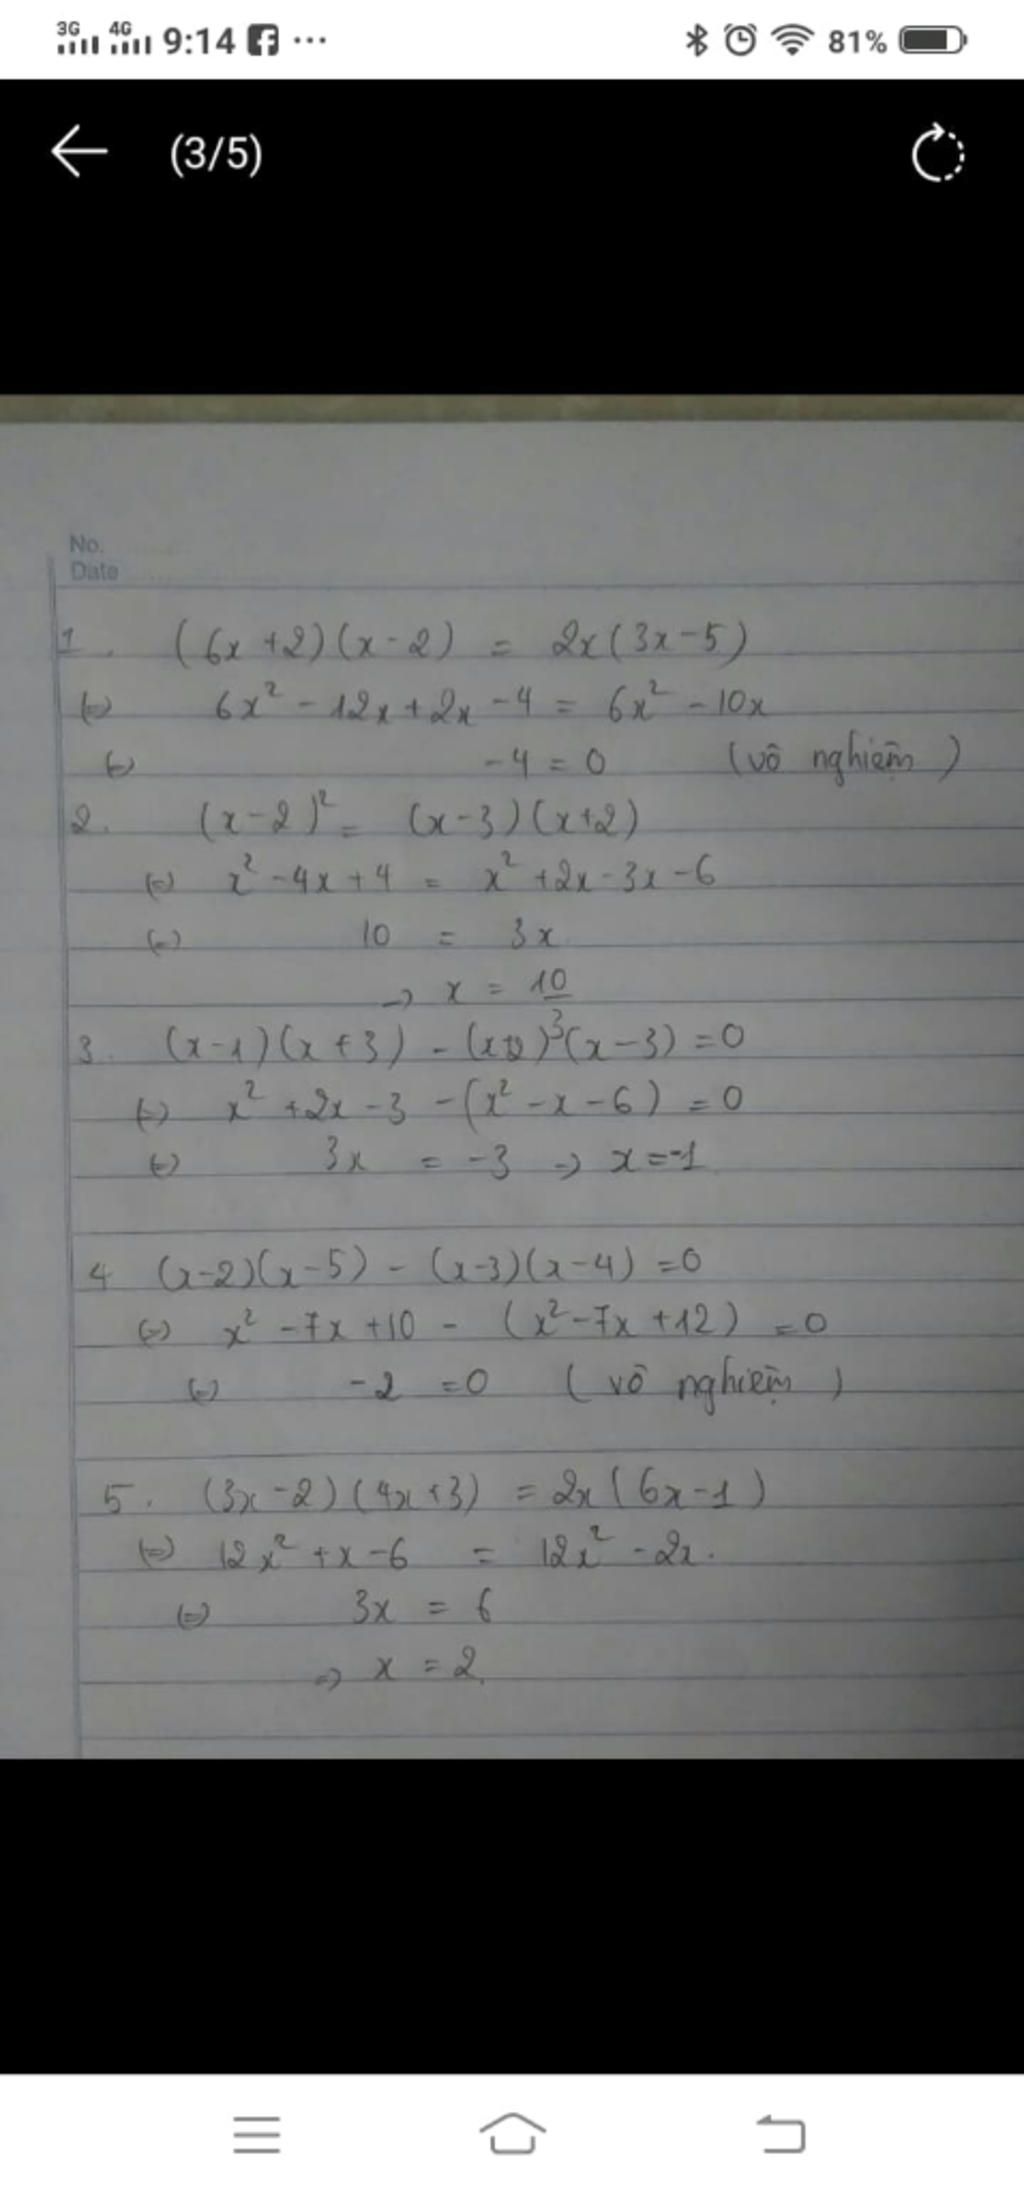 3G 4G 9:14 ... 81%
(3/5)
No.
Date
1. (6x+2)(x-2) = 2x(3x-5)
(=) 6x² - 12x + 2x - 4 = 6x² - 10x
(=) -4 = 0 (vô nghiệm)
2. (x-2)² = (x-3)(x+2)
(=) x² - 4x + 4 = x² + 2x - 3x - 6
(=) 10 = 3x
=> x = 10/3
3. (x-1)(x+3) - (x+2)(x-3) = 0
(=) x² + 2x - 3 - (x² - x - 6) = 0
(=) 3x = -3 => x = -1
4 (x-2)(x-5) - (x-3)(x-4) = 0
(=) x² - 7x + 10 - (x² - 7x + 12) = 0
(=) -2 = 0 (vô nghiệm)
5. (3x-2)(4x+3) = 2x(6x-1)
(=) 12x² + x - 6 = 12x² - 2x.
(=) 3x = 6
=> x = 2.